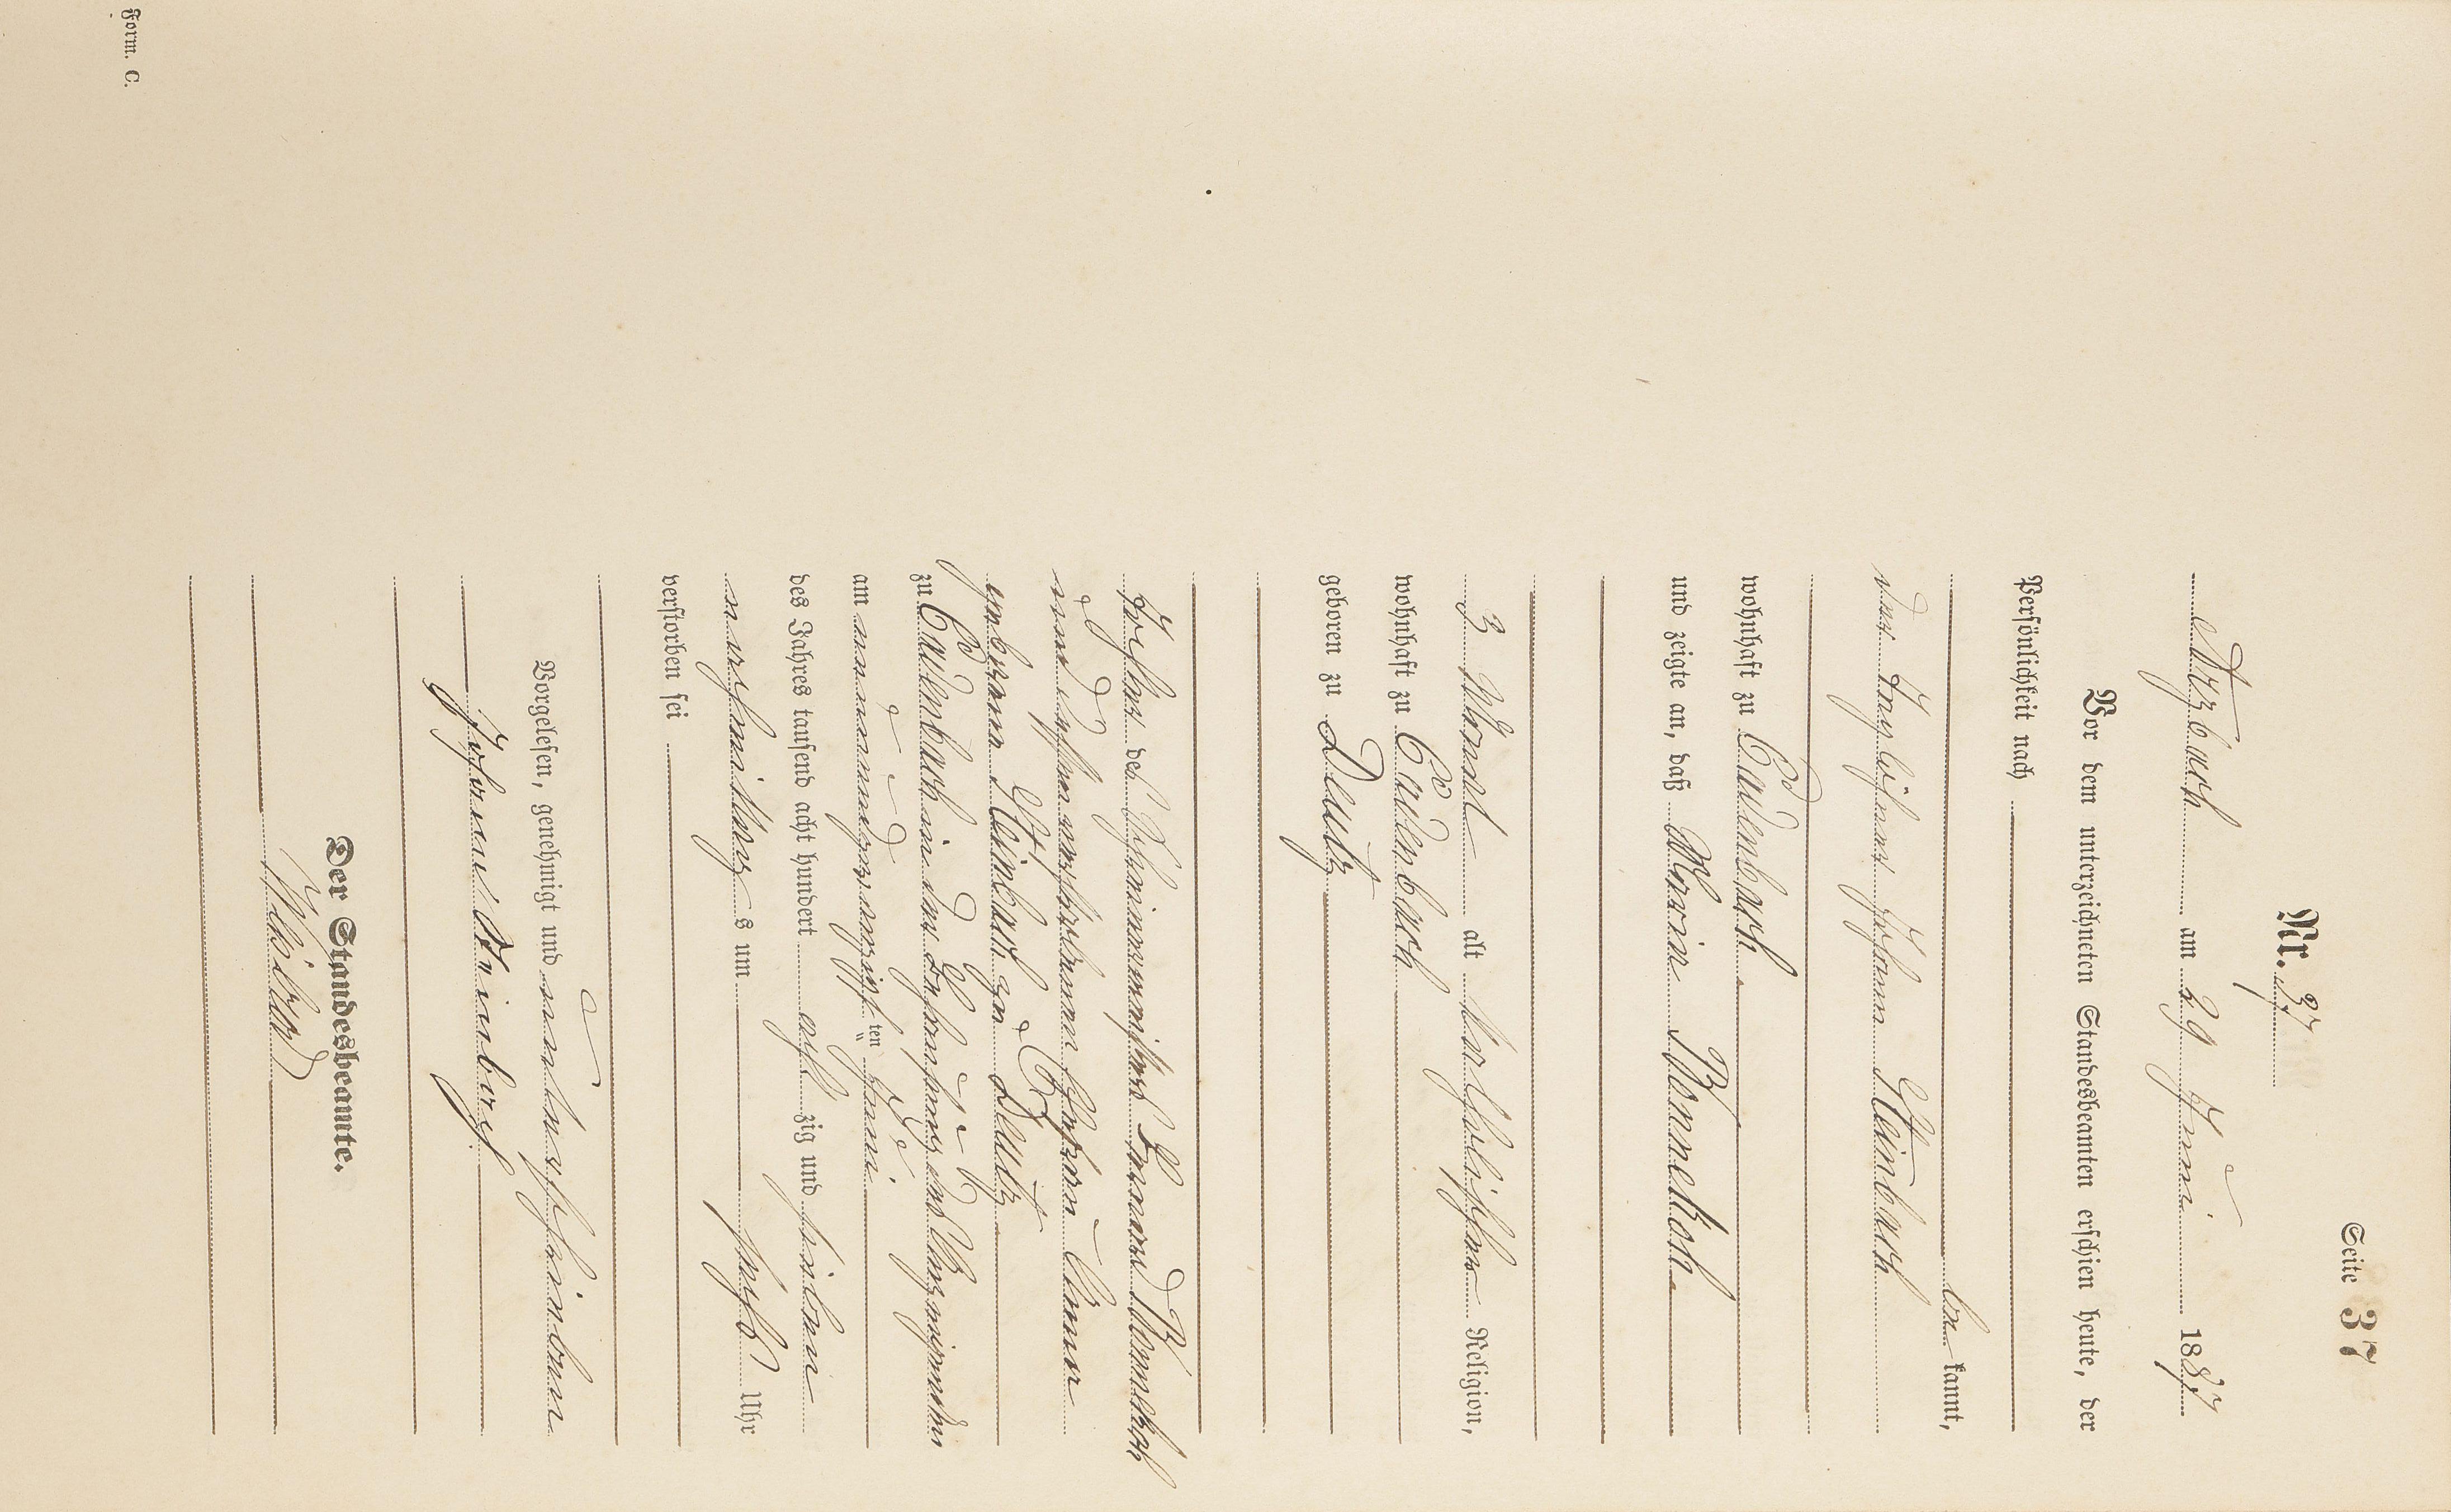 Seite 37
Nr. 37
Arzbach am 29 Juni 1887
Vor dem unterzeichneten Standesbeamten erschien heute, der
Persönlichkeit nach
be kannt,
der Taglöhner Johann Steinbach
wohnhaft zu Cadenbach
und zeigte an, daß Maria Bennekoh
3 Monat alt katholischer Religion,
wohnhaft zu Cadenbach
geboren zu Deutz
Tochter des Schreinermeisters Bennekoh
und dessen verstorbenen Ehefrau Anna
geborene Steinbach zu Deutz
zu Cadenbach in der Behausung des Anzeigenden
am neunundzwanzigsten Juni
des Jahres tausend acht hundert acht zig und sieben
vormittag s um sechs Uhr
verstorben sei
Vorgelesen, genehmigt und unterschrieben
Johann Steinbach
Der Standesbeamte.
Form. C.